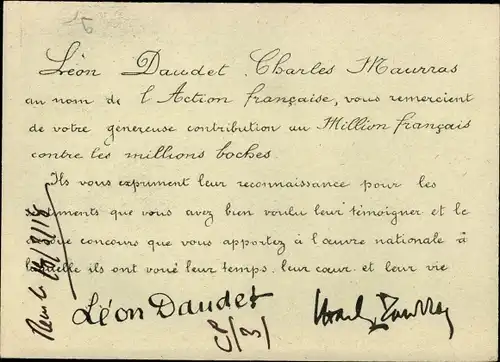 Léon Daudet, Charles Maurras
au nom de l'Action française, vous remercient
de votre généreuse contribution au Million français
contre les millions boches.
Ils vous expriment leur reconnaissance pour les
sentiments que vous avez bien voulu leur témoigner et le
concours que vous apportez à l'œuvre nationale à
laquelle ils ont voué leur temps, leur cœur et leur vie
Léon Daudet
Charles Maurras